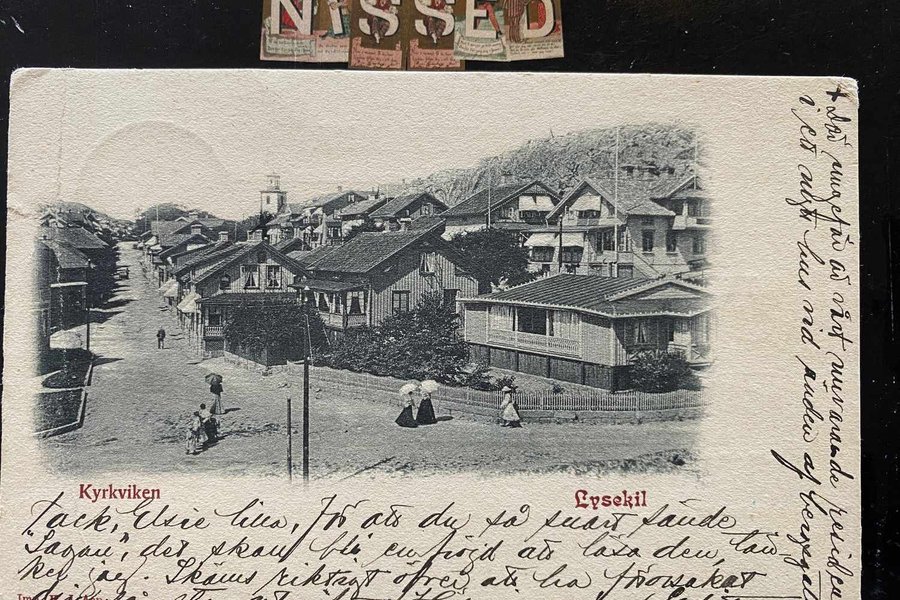 NISSED
Kyrkviken
Lysekil
Tack, Elsie lilla, för att du så snart sände
"Sagan", det skall bli en fröjd att läsa den, tän
ker jag. Skäms riktigt öfver att ha förorsakat
+ Det ungefär är vårt nuvarande residen
i ett nytt hus vid änden af